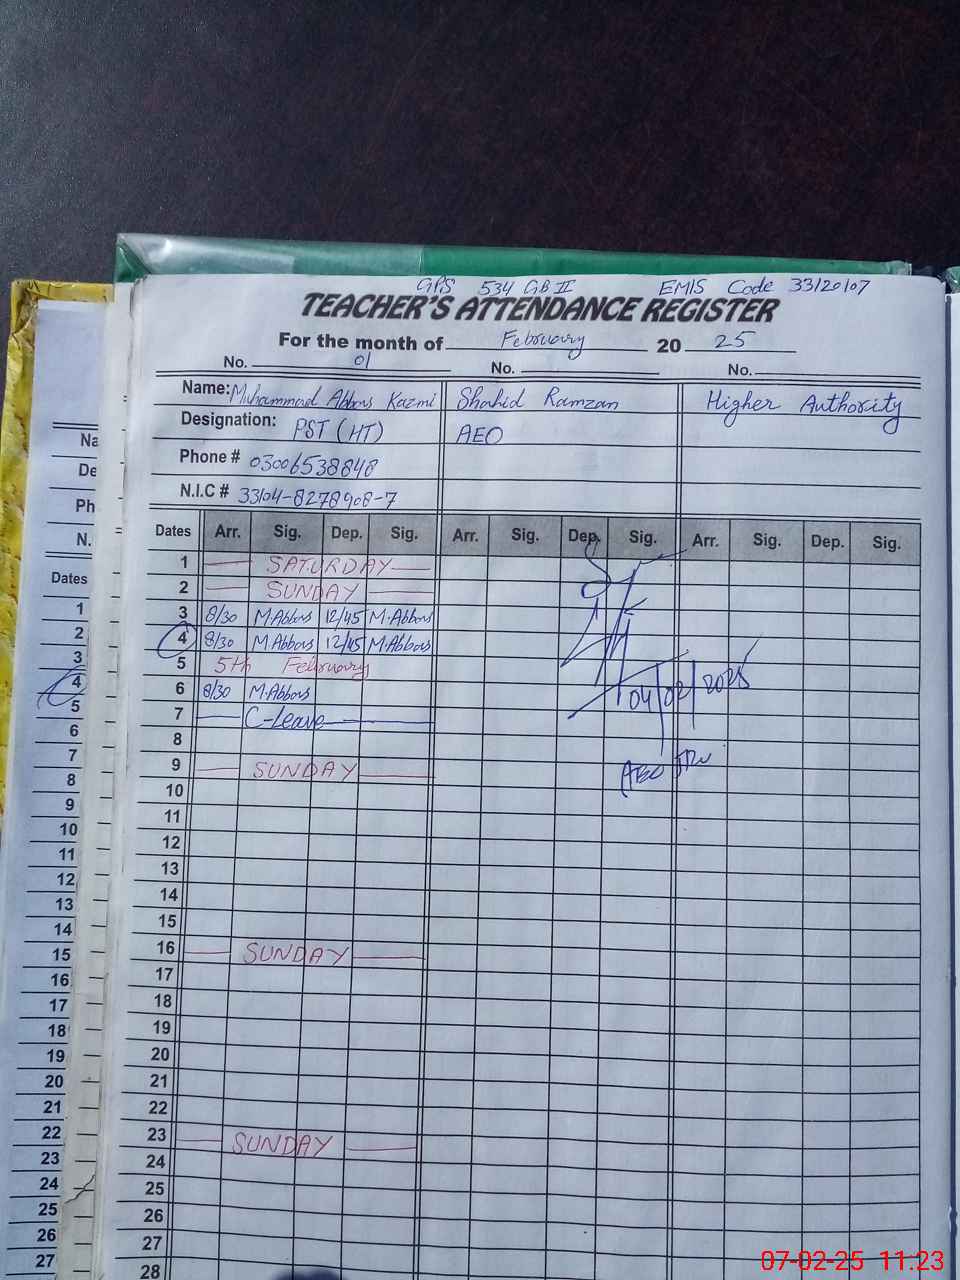 GPS 534 GB II EMIS Code 33120107
TEACHER'S ATTENDANCE REGISTER
For the month of February 20 25
No. 01 No. No.
Name: Muhammad Abbas Kazmi Shahid Ramzan Higher Authority
Designation: PST (HT) AEO
Phone # 03006538848
N.I.C # 33104-8278908-7
Dates Arr. Sig. Dep. Sig. Arr. Sig. Dep. Sig. Arr. Sig. Dep. Sig.
1 SATURDAY
2 SUNDAY
3 8/30 M.Abbas 12/45 M.Abbas
4 8/30 M.Abbas 12/45 M.Abbas
5 5th February
6 8/30 M.Abbas
04/02/2025
7 C-Leave
8
AEO
9 SUNDAY
10
11
12
13
14
15
16 SUNDAY
17
18
19
20
21
22
23 SUNDAY
24
25
26
27
28
Na
De
Ph
N.
Dates
1
2
3
4
5
6
7
8
9
10
11
12
13
14
15
16
17
18
19
20
21
22
23
24
25
26
27
07-02-25 11:23